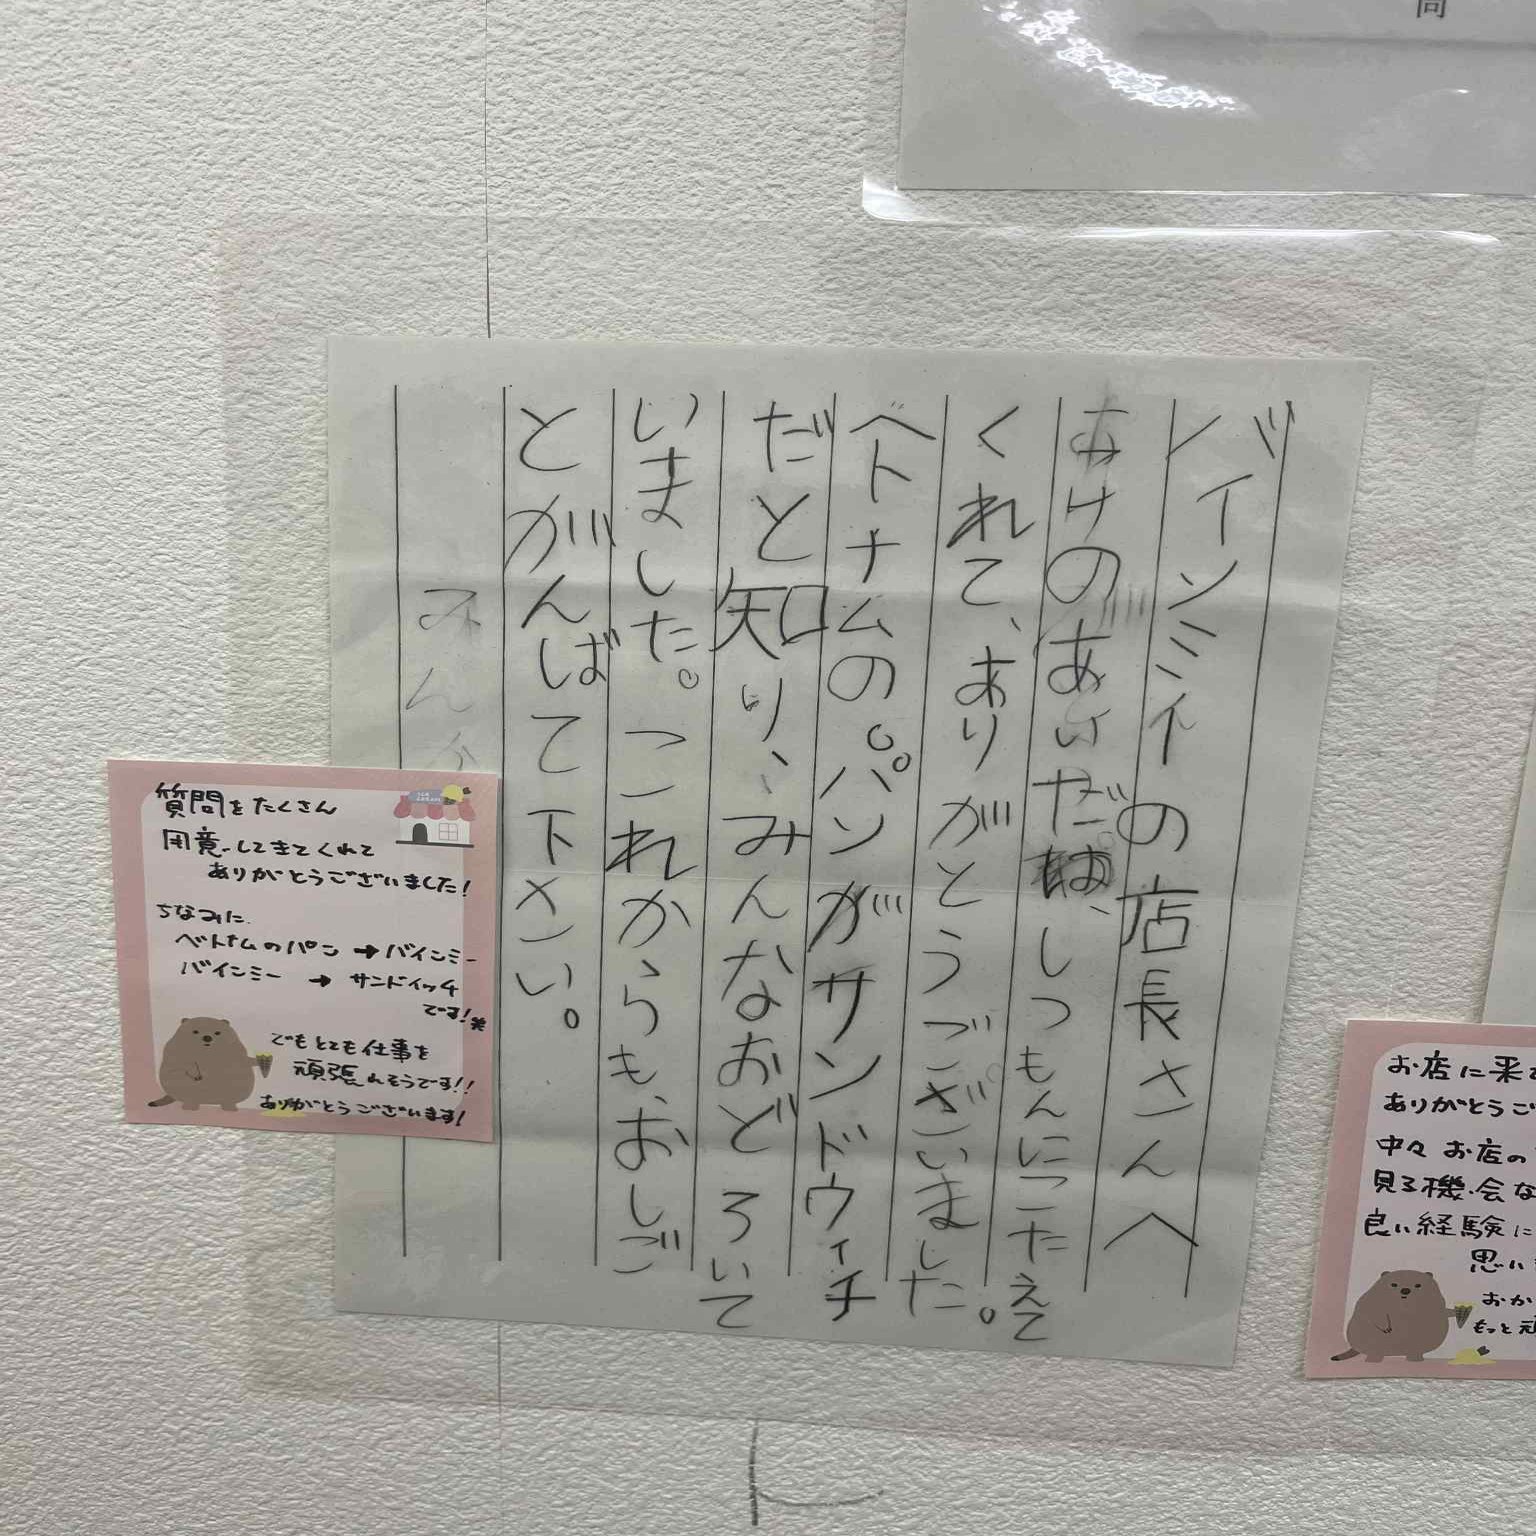 同
バインミイの店長さんへ
おけのあいだは、しつもんにこたえて
くれて、ありがとうございました。
ベトナムの。パンがサンドウィチ
だと知り、みんなおどろいて
いました。これからも、おしご
とがんばて下さい。
みん
質問をたくさん
用意してきてくれて
ありがとうございました!
ちなみに
ベトナムのパン→バインミー
バインミー → サンドイッチ
です!笑
でもとても仕事を
頑張れそうです!!
ありがとうございます!
お店に来
ありがとうご
中々お店の
見る機会な
良い経験に
思い
おか
もっと頑